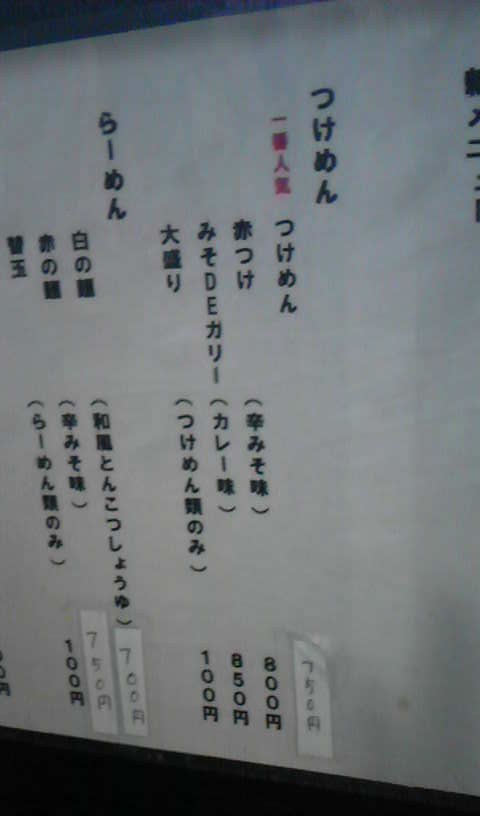 麺メニュー
つけめん
一番人気 つけめん 750円
赤つけ (辛みそ味) 800円
みそDEカリー (カレー味) 850円
大盛り (つけめん類のみ) 100円
らーめん
白の麺 (和風とんこつしょうゆ) 700円
赤の麺 (辛みそ味) 750円
替玉 (らーめん類のみ) 100円
0円